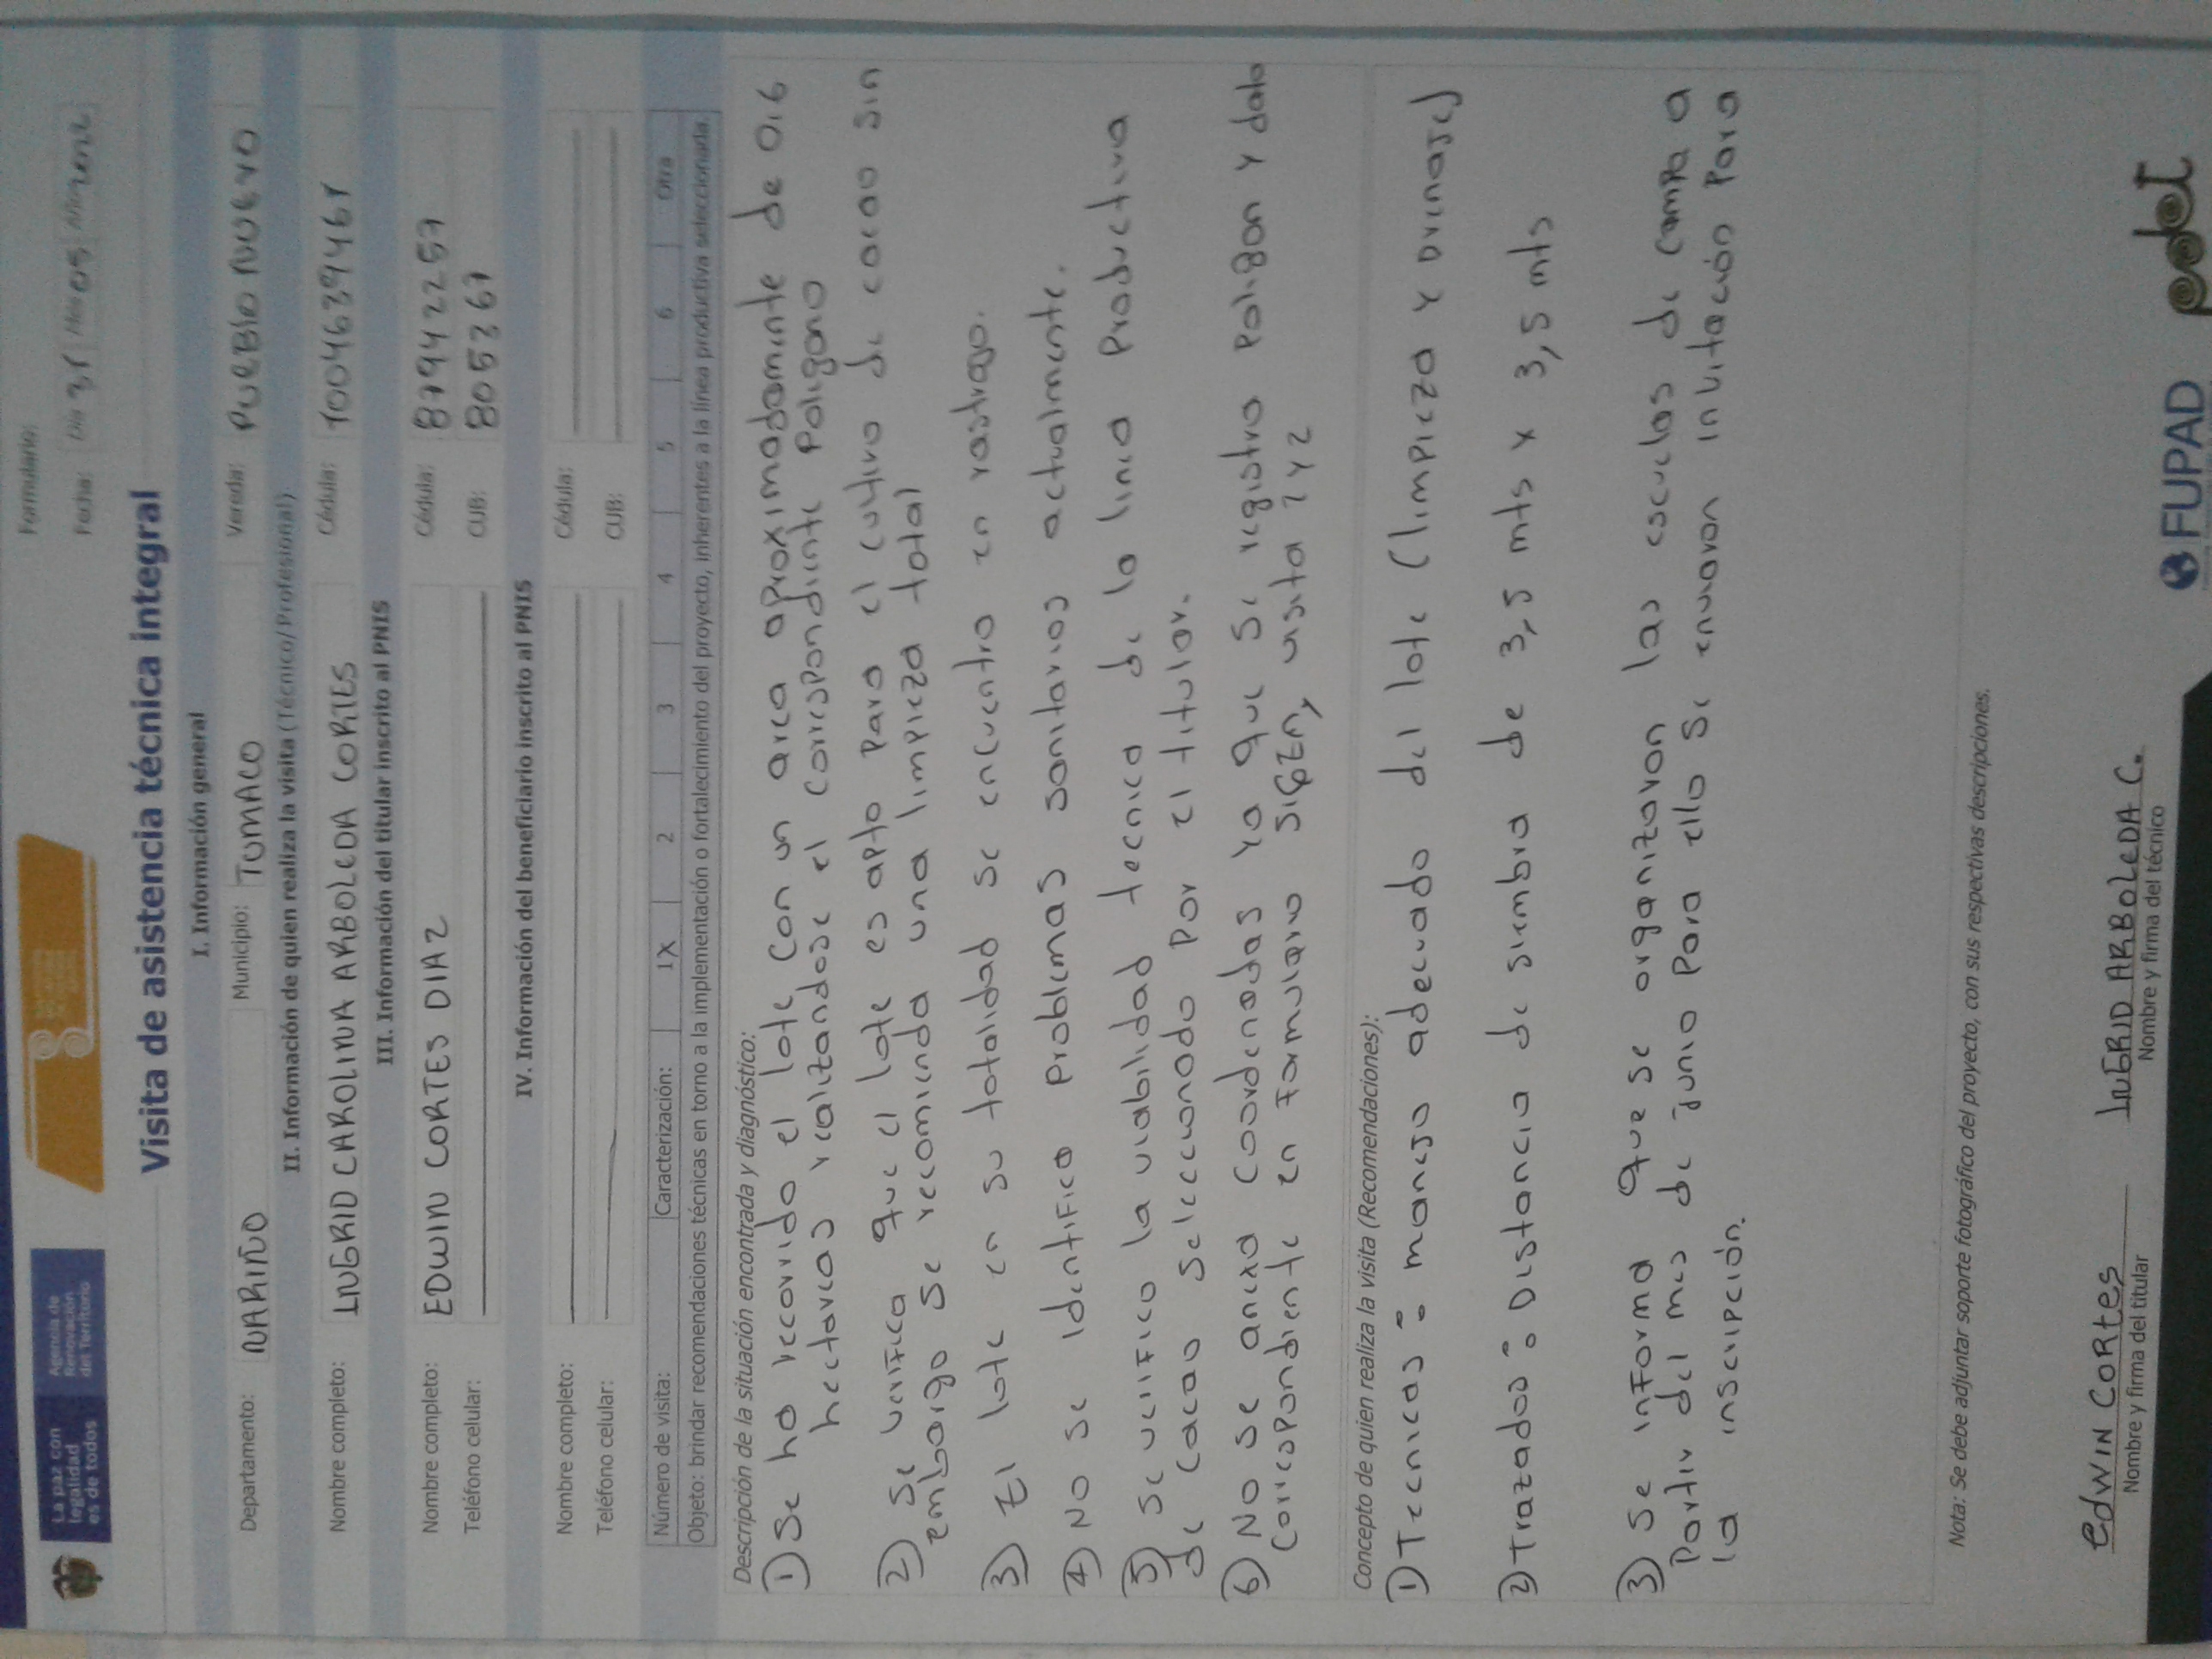 La paz con
legalidad
es de todos
Agencia de
Renovación
del Territorio
Formulario:
Fecha: Día 31 Mes 05 Año
Visita de asistencia técnica integral
I. Información general
Departamento: NARIÑO Municipio: TUMACO Vereda: PUEBLO NUEVO
II. Información de quien realiza la visita (Técnico/Profesional)
Nombre completo: INGRID CAROLINA ARBOLEDA CORTES Cédula: 1004639461
III. Información del titular inscrito al PNIS
Nombre completo: EDWIN CORTES DIAZ Cédula: 87942257
Teléfono celular: CUB: 805361
IV. Información del beneficiario inscrito al PNIS
Nombre completo: Cédula:
Teléfono celular: CUB:
Número de visita: Caracterización: 1X 2 3 4 5 6 Otra
Objeto: brindar recomendaciones técnicas en torno a la implementación o fortalecimiento del proyecto, inherentes a la línea productiva seleccionada.
Descripción de la situación encontrada y diagnóstico:
1) Se ha recorrido el lote con un area aproximadamente de 0.6
hectareas realizandose el correspondiente Poligono
2) Se verifica que el lote es apto para el cultivo de cacao sin
embargo se recomienda una limpieza total
3) El lote en su totalidad se encuentra en rastrojo.
4) No se identifico problemas sanitarios actualmente.
5) Se verifico la viabilidad tecnica de la linea Productiva
de cacao seleccionado por el titular.
6) No se anexa coordenadas ya que se registro poligon y dato
correspondiente en Formulario SIGEN, visita 1 y 2
Concepto de quien realiza la visita (Recomendaciones):
1) Tecnicas: manejo adecuado del lote (limpieza y Drenajes)
2) Trazados: Distancia de siembra de 3,5 mts x 3,5 mts
3) Se informa que se organizaron las escuelas de campo a
Partir del mes de junio Para ello se enviaron invitación Para
la inscripción.
Nota: Se debe adjuntar soporte fotográfico del proyecto, con sus respectivas descripciones.
EDWIN CORTES
Nombre y firma del titular
INGRID ARBOLEDA C.
Nombre y firma del técnico
FUPAD
pdet